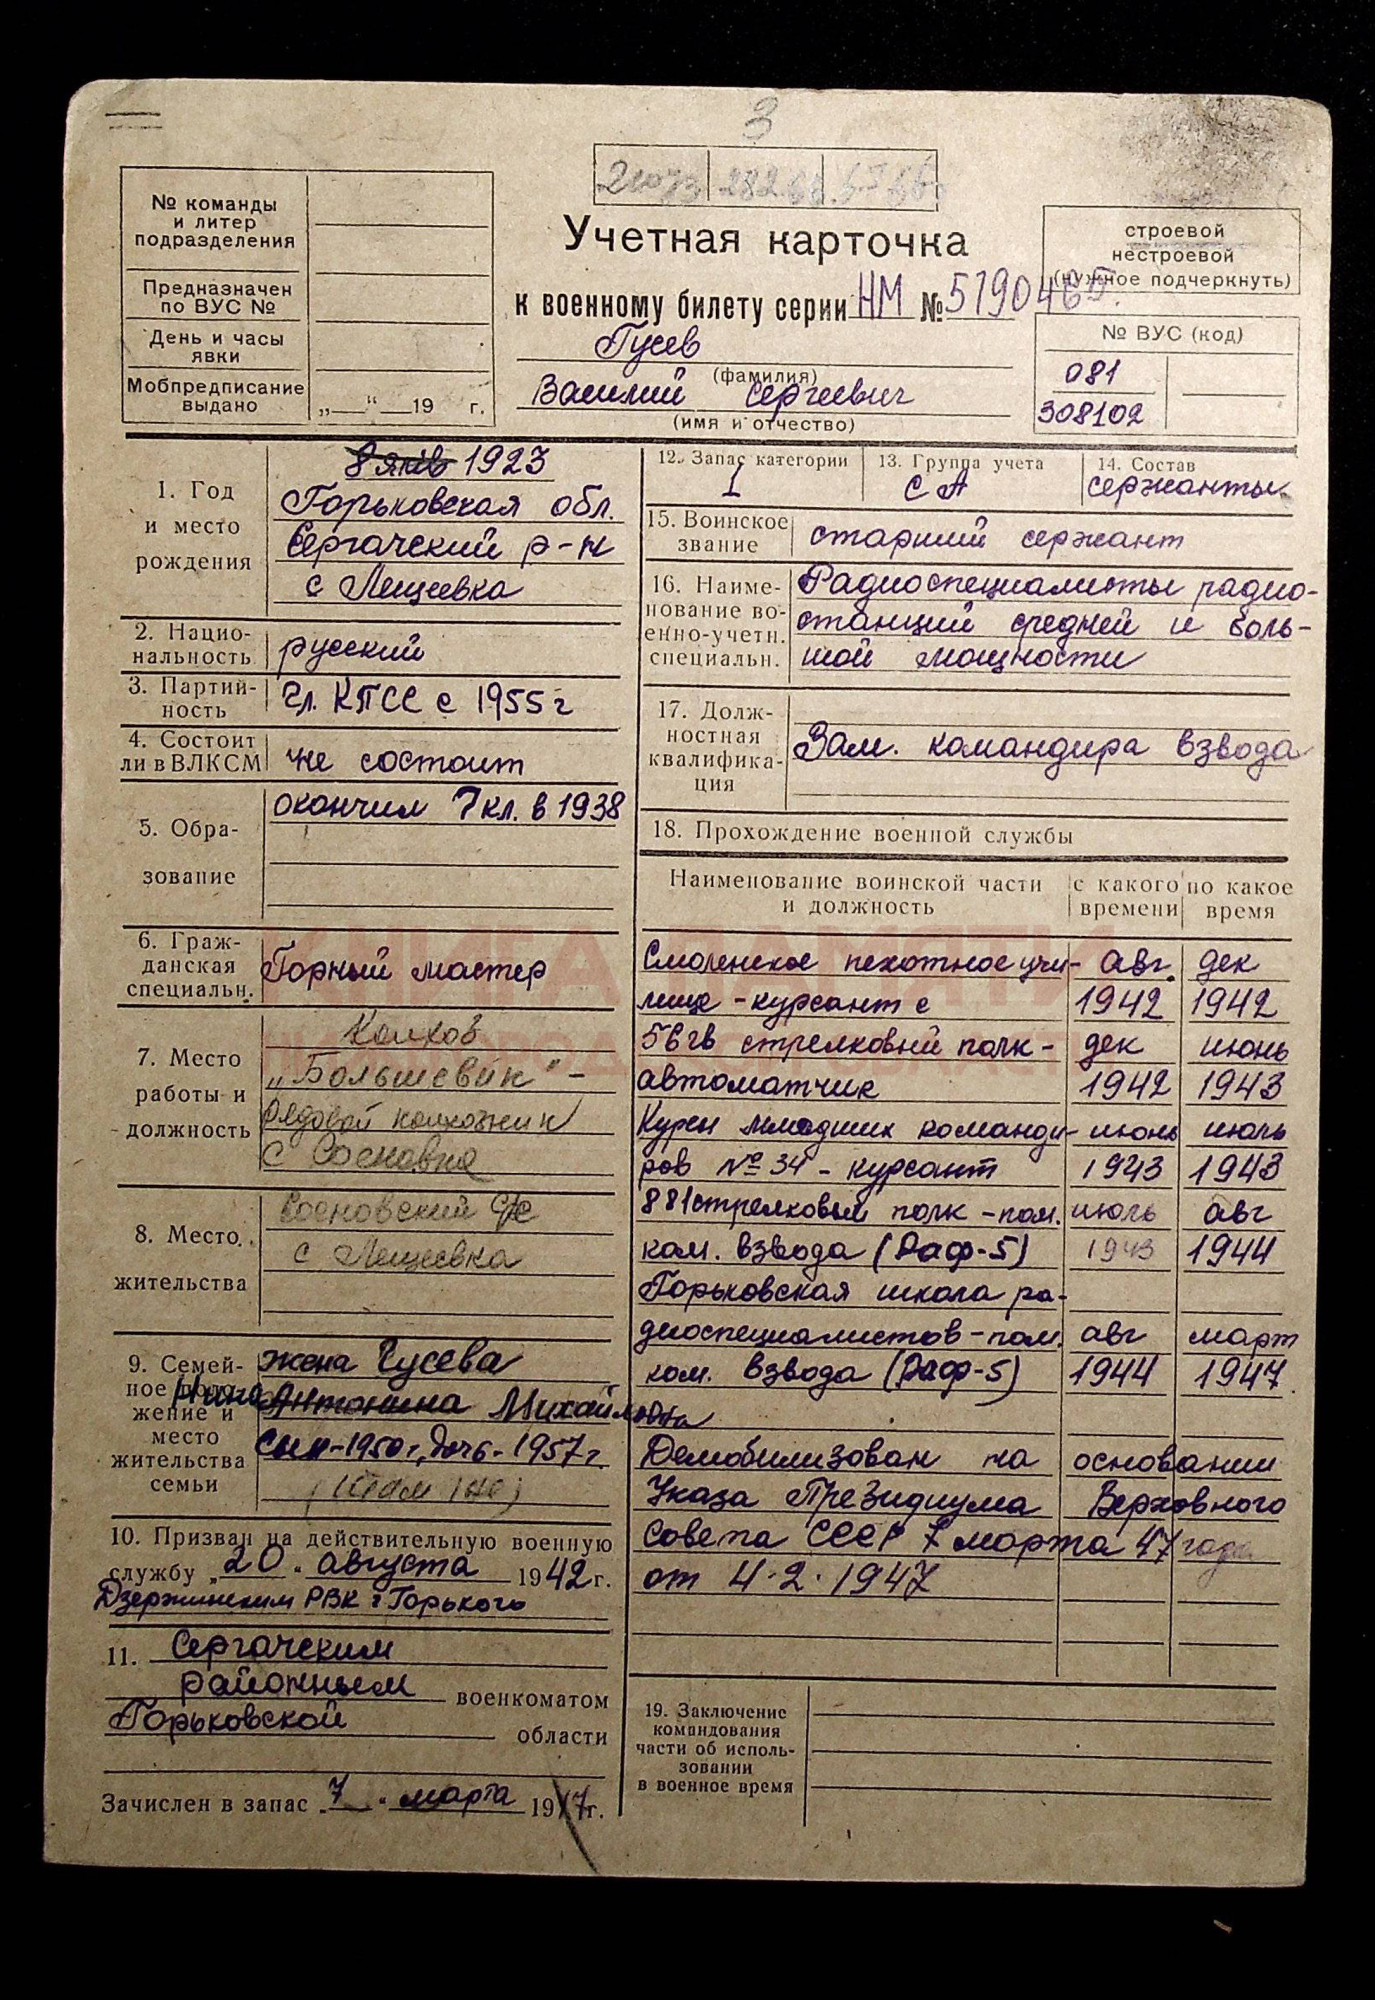 3
№ команды
и литер
подразделения
Предназначен
по ВУС №
День и часы
явки
Мобпредписание
выдано
„__“ __19 г.
Учетная карточка
к военному билету серии НМ №
Гусев
(фамилия)
Василий Сергеевич
(имя и отчество)
строевой
нестроевой
(нужное подчеркнуть)
№ ВУС (код)
081
308102
1. Год
и место
рождения
8 янв 1923
Горьковская обл.
Сергачский р-н
с Лещеевка
2. Нацио-
нальность
русский
3. Партий-
ность
чл. КПСС с 1955 г
4. Состоит
ли в ВЛКСМ
не состоит
5. Обра-
зование
окончил 7 кл. в 1938
6. Граж-
данская
специальн.
Горный мастер
7. Место
работы и
должность
Колхоз
„Большевик" -
рядовой колхозник
с Сосновка
8. Место
жительства
Сосновский с/с
с Лещеевка
9. Семей-
ное поло-
жение и
место
жительства
семьи
жена Гусева
Нина Антонина Михайловна
сын-1950г, дочь-1957г.
10. Призван на действительную военную
службу „20" августа 1942 г.
Дзержинским РВК г Горького
11. Сергачским
районным военкоматом
Горьковской области
Зачислен в запас „7" марта 1947г.
12. Запас категории
I
13. Группа учета
СА
14. Состав
сержанты
15. Воинское
звание
старший сержант
16. Наиме-
нование во-
енно-учетн.
специальн.
Радиоспециалисты радио-
станций средней и боль-
шой мощности
17. Долж-
ностная
квалифика-
ция
Зам. командира взвода
18. Прохождение военной службы
Наименование воинской части
и должность
с какого
времени
по какое
время
Смоленское пехотное учи- авг. дек
лище - курсант с 1942 1942
56 гв стрелковый полк - дек июнь
автоматчик 1942 1943
Курсы младших команди- июнь июль
ров № 34 - курсант 1943 1943
881 стрелковый полк - пом. июль авг
ком. взвода (Раф-5) 1943 1944
Горьковская школа ра-
диоспециалистов - пом. авг март
ком. взвода (Раф-5) 1944 1947
Демобилизован на основании
Указа Президиума Верховного
Совета СССР 7 марта 47 года
от 4.2.1947
19. Заключение
командования
части об исполь-
зовании
в военное время
КНИГА ПАМЯТИ